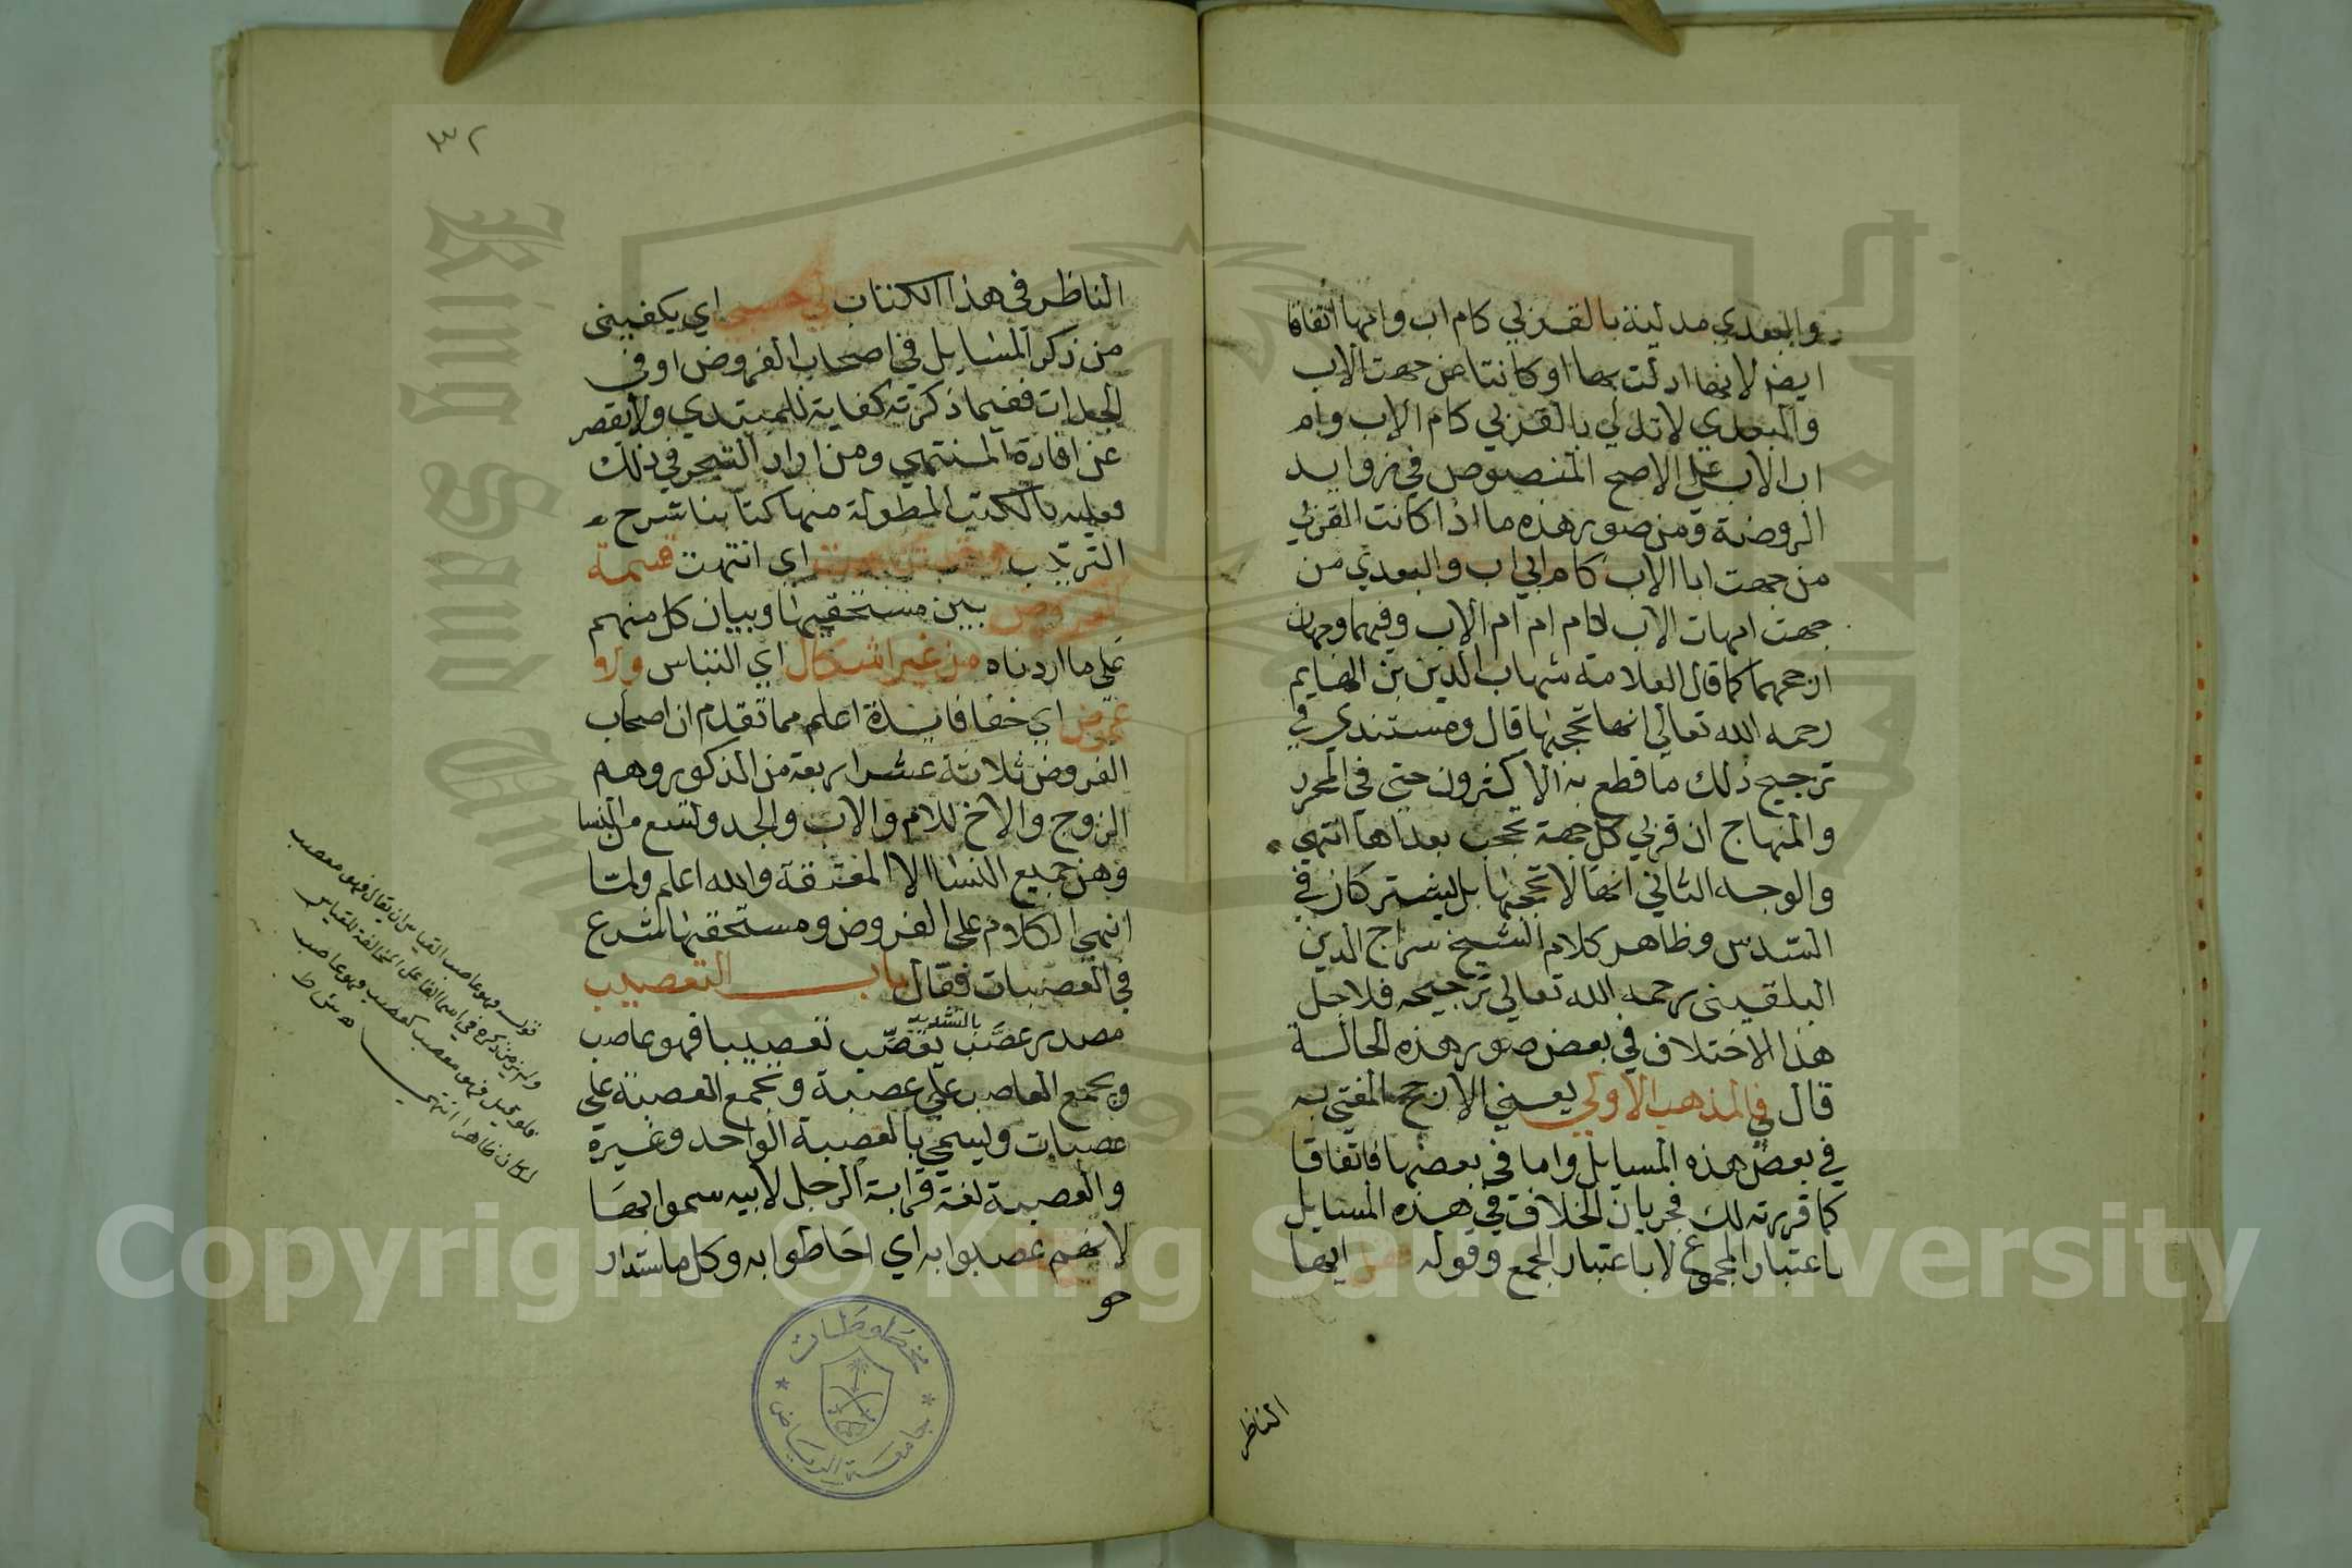 والبعدي مدلية بالقربي كام اب وامها اتفاقا
ايضا لانها ادلت بها او كانتا من جهت الاب
والبعدي لا تدلي بالقربي كام الاب وام
اب الاب علي الاصح المنصوص في زوايد
الروضة ومن صور هذه ما اذا كانت القربي
من جهت ابا الاب كام ابي اب والبعدي من
جهت امهات الاب كام ام ام الاب وفيها وجهان
ارجحهما كما قال العلامة شهاب الدين بن الهايم
رحمه الله تعالي انها تحجبها قال ومستندي في
ترجيح ذلك ما قطع به الاكثرون حتي في المحرر
والمنهاج ان قربي كل جهة تحجب بعداها انتهي
والوجه الثاني انها لا تحجبها بل يشتركان في
السدس وظاهر كلام الشيخ سراج الدين
البلقيني رحمه الله تعالي ترجيحه فلاجل
هذا الاختلاف في بعض صور هذه الحالة
قال في المذهب الاولي يعني الارجح المفتي به
في بعض هذه المسايل واما في بعضها فاتفاقا
كما قررته لك فجريان الخلاف في هذه المسايل
باعتبار المجموع لا باعتبار الجمع وقوله ايها
الناظر
٣٢
الناظر في هذا الكتاب لي حسبي اي يكفيني
من ذكر المسايل في اصحاب الفروض او في
الجدات ففيما ذكرته كفاية للمبتدي ولا يقصر
عن افادة المنتهي ومن اراد التبحر في ذلك
فعليه بالكتب المطولة منها كتابنا شرح
الترتيب اي انتهت قسمة
الفروض بين مستحقيها وبيان كل منهم
علي ما اردناه من غير اشكال اي التباس ولا
غموض اي خفا فايدة اعلم مما تقدم ان اصحاب
الفروض ثلاثة عشر اربعة من الذكور وهم
الزوج والاخ للام والاب والجد وتسع من النسا
وهن جميع النسا الا المعتقة والله اعلم ولما
انهي الكلام علي الفروض ومستحقيها شرع
في العصبات فقال باب التعصيب
مصدر عصب بالتشديد يعصب تعصيبا فهو عاصب
ويجمع العاصب علي عصبة وتجمع العصبة علي
عصبات ويسمي بالعصبة الواحد وغيره
والعصبة لغة قرابة الرجل لابيه سموا بها
لانهم عصبوا به اي احاطوا به وكل ما استدار
حو
قوله وهو عاصب القياس ان يقال فهو معصب
ولم ار من ذكره في اسم الفاعل المخالفة للقياس
فلو قيل فهو معصب كعصب وهو عاصب
لكان ظاهرا انتهي
مخطوطات
جامعة الرياض
Copyright © King Saud University
King Saud University